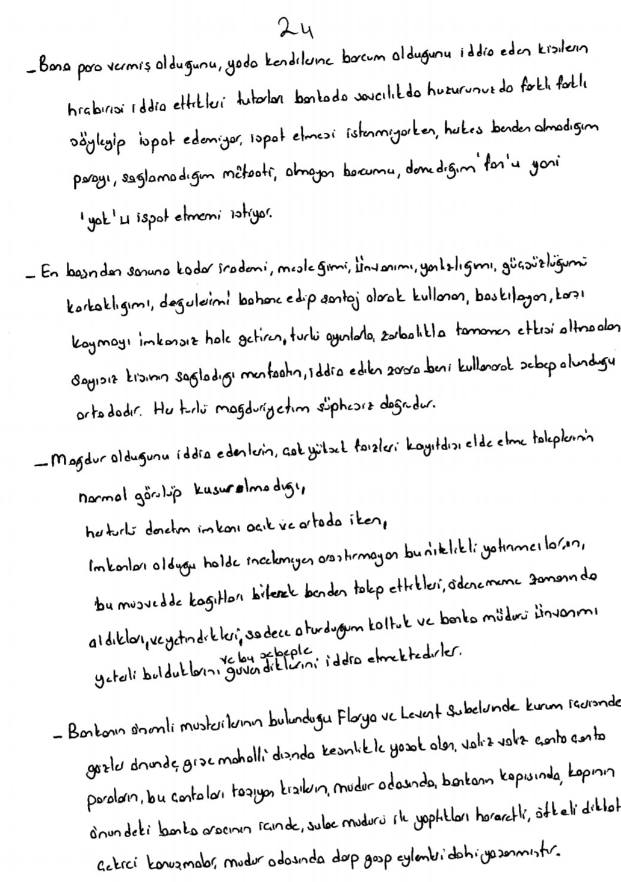 24
- Bana para vermiş olduğunu, yada kendilerine borcum olduğunu iddia eden kişilerin
hiçbirisi iddia ettikleri tutarları bankada savcılıkda huzurunuzda farklı farklı
söyleyip ispat edemiyor, ispat etmesi istenmiyorken, herkes benden almadığım
parayı, sağlamadığım menfaati, olmayan borcumu, demediğim 'fon'u yani
'yok'u ispat etmemi istiyor.
- En başından sonuna kadar irademi, mesleğimi, ünvanımı, yanlızlığımı, güçsüzlüğümü
korkaklığımı, değerlerimi bahane edip şantaj olarak kullanan, baskılayan, karşı
koymayı imkansız hale getiren, türlü oyunlarla, zorbalıkla tamamen etkisi altına alan
sayısız kişinin sağladığı menfaatin, iddia edilen zarara beni kullanarak sebep olunduğu
ortadadır. Her türlü mağduriyetim şüphesiz doğrudur.
- Mağdur olduğunu iddia edenlerin, çok yüksek faizleri kayıtdışı elde etme taleplerinin
normal görülüp kusur olmadığı,
her türlü denetim imkanı açık ve ortada iken,
imkanları olduğu halde incelemiyen araştırmayan bu nitelikli yatırımcıların,
bu müsvedde kağıtları bilerek benden talep ettikleri, ödenememe zamanında
aldıkları, ve yetindikleri, sadece oturduğum koltuk ve banka müdürü ünvanımı
yeterli bulduklarını ve bu sebeple güvendiklerini iddia etmektedirler.
- Bankanın önemli müşterilerinin bulunduğu Florya ve Levent Şubelerinde kurum içerisinde
gözler önünde, gişe mahalli dışında kesinlikle yasak olan, valiz valiz çanta çanta
paraların, bu çantaları taşıyan kişilerin, müdür odasında, bankanın kapısında, kapının
önündeki banka aracının içinde, şube müdürü ile yaptıkları hararetli, öfkeli dikkat
çekici konuşmalar, müdür odasında darp gasp eylemleri dahi yaşanmıştır.